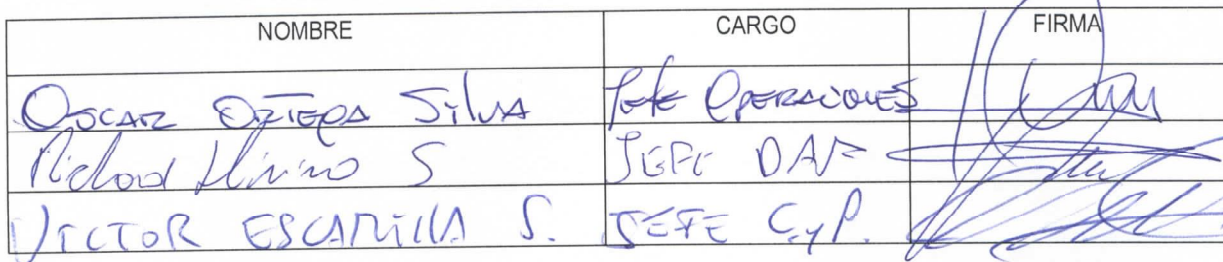 NOMBRE CARGO FIRMA
OSCAR ORTEGA SILVA Jefe OPERACIONES
Richard S JEFE DAF
VICTOR ESCAMILLA S. JEFE C.yP.